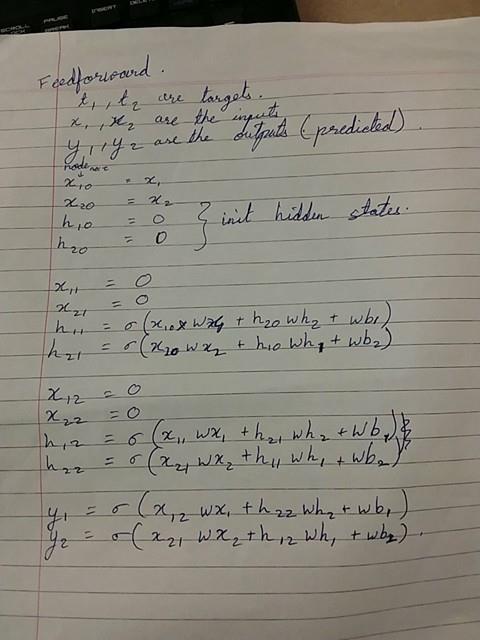 SCROLL LOCK PAUSE BREAK INSERT DELETE
Feedforward.
t₁, t₂ are targets.
x₁, x₂ are the inputs
y₁, y₂ are the outputs (predicted).
node
x₁₀ = x₁
x₂₀ = x₂
h₁₀ = 0 } init hidden states.
h₂₀ = 0
x₁₁ = 0
x₂₁ = 0
h₁₁ = σ(x₁₀ wx₁ + h₂₀ wh₂ + wb₁)
h₂₁ = σ(x₂₀ wx₂ + h₁₀ wh₁ + wb₂)
x₁₂ = 0
x₂₂ = 0
h₁₂ = σ(x₁₁ wx₁ + h₂₁ wh₂ + wb₁)
h₂₂ = σ(x₂₁ wx₂ + h₁₁ wh₁ + wb₂)
y₁ = σ(x₁₂ wx₁ + h₂₂ wh₂ + wb₁)
y₂ = σ(x₂₁ wx₂ + h₁₂ wh₁ + wb₂).